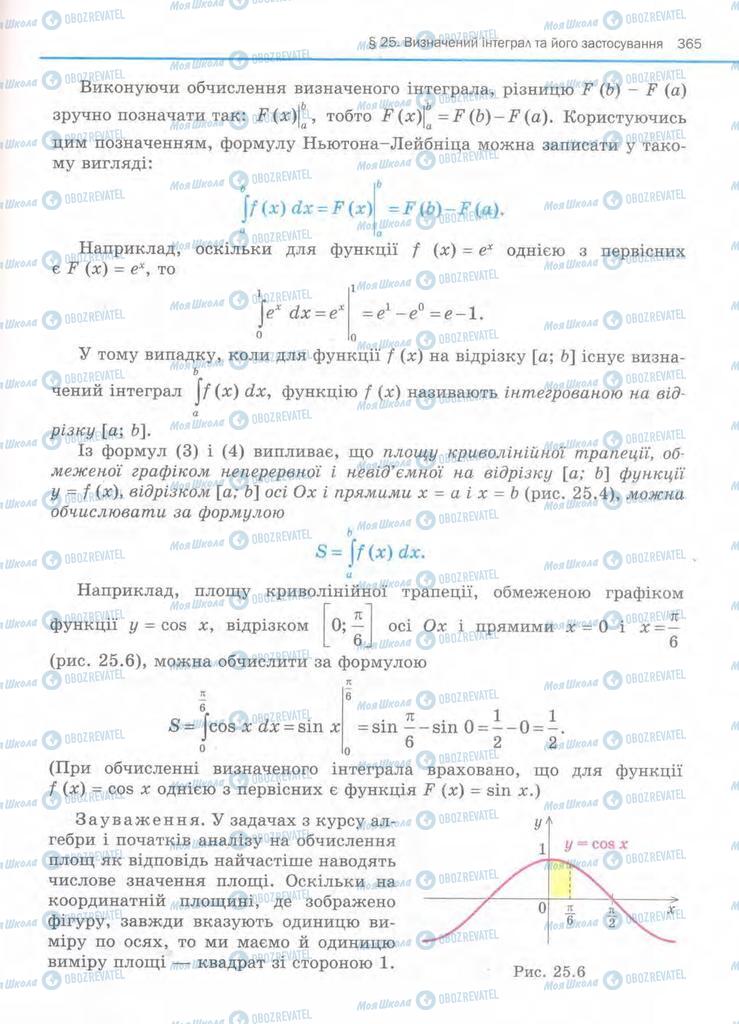 § 25. Визначений інтеграл та його застосування 365
Виконуючи обчислення визначеного інтеграла, різницю F (b) – F (a)
зручно позначати так: F (x)|ₐᵇ, тобто F (x)|ₐᵇ = F (b) – F (a). Користуючись
цим позначенням, формулу Ньютона–Лейбніца можна записати у тако-
му вигляді:
∫ₐᵇ f (x) dx = F (x)|ₐᵇ = F (b) – F (a).
Наприклад, оскільки для функції f (x) = eˣ однією з первісних
є F (x) = eˣ, то
∫₀¹ eˣ dx = eˣ|₀¹ = e¹ – e⁰ = e – 1.
У тому випадку, коли для функції f (x) на відрізку [a; b] існує визна-
чений інтеграл ∫ₐᵇ f (x) dx, функцію f (x) називають інтегрованою на від-
різку [a; b].
Із формул (3) і (4) випливає, що площу криволінійної трапеції, об-
меженої графіком неперервної і невід'ємної на відрізку [a; b] функції
y = f (x), відрізком [a; b] осі Ox і прямими x = a і x = b (рис. 25.4), можна
обчислювати за формулою
S = ∫ₐᵇ f (x) dx.
Наприклад, площу криволінійної трапеції, обмеженою графіком
функції y = cos x, відрізком [0; π/6] осі Ox і прямими x = 0 і x = π/6
(рис. 25.6), можна обчислити за формулою
S = ∫₀^(π/6) cos x dx = sin x|₀^(π/6) = sin π/6 – sin 0 = 1/2 – 0 = 1/2.
(При обчисленні визначеного інтеграла враховано, що для функції
f (x) = cos x однією з первісних є функція F (x) = sin x.)
Зауваження. У задачах з курсу ал-
гебри і початків аналізу на обчислення
площ як відповідь найчастіше наводять
числове значення площі. Оскільки на
координатній площині, де зображено
фігуру, завжди вказують одиницю ви-
міру по осях, то ми маємо й одиницю
виміру площі — квадрат зі стороною 1.
y
1 y = cos x
0 π/6 π/2 x
Рис. 25.6